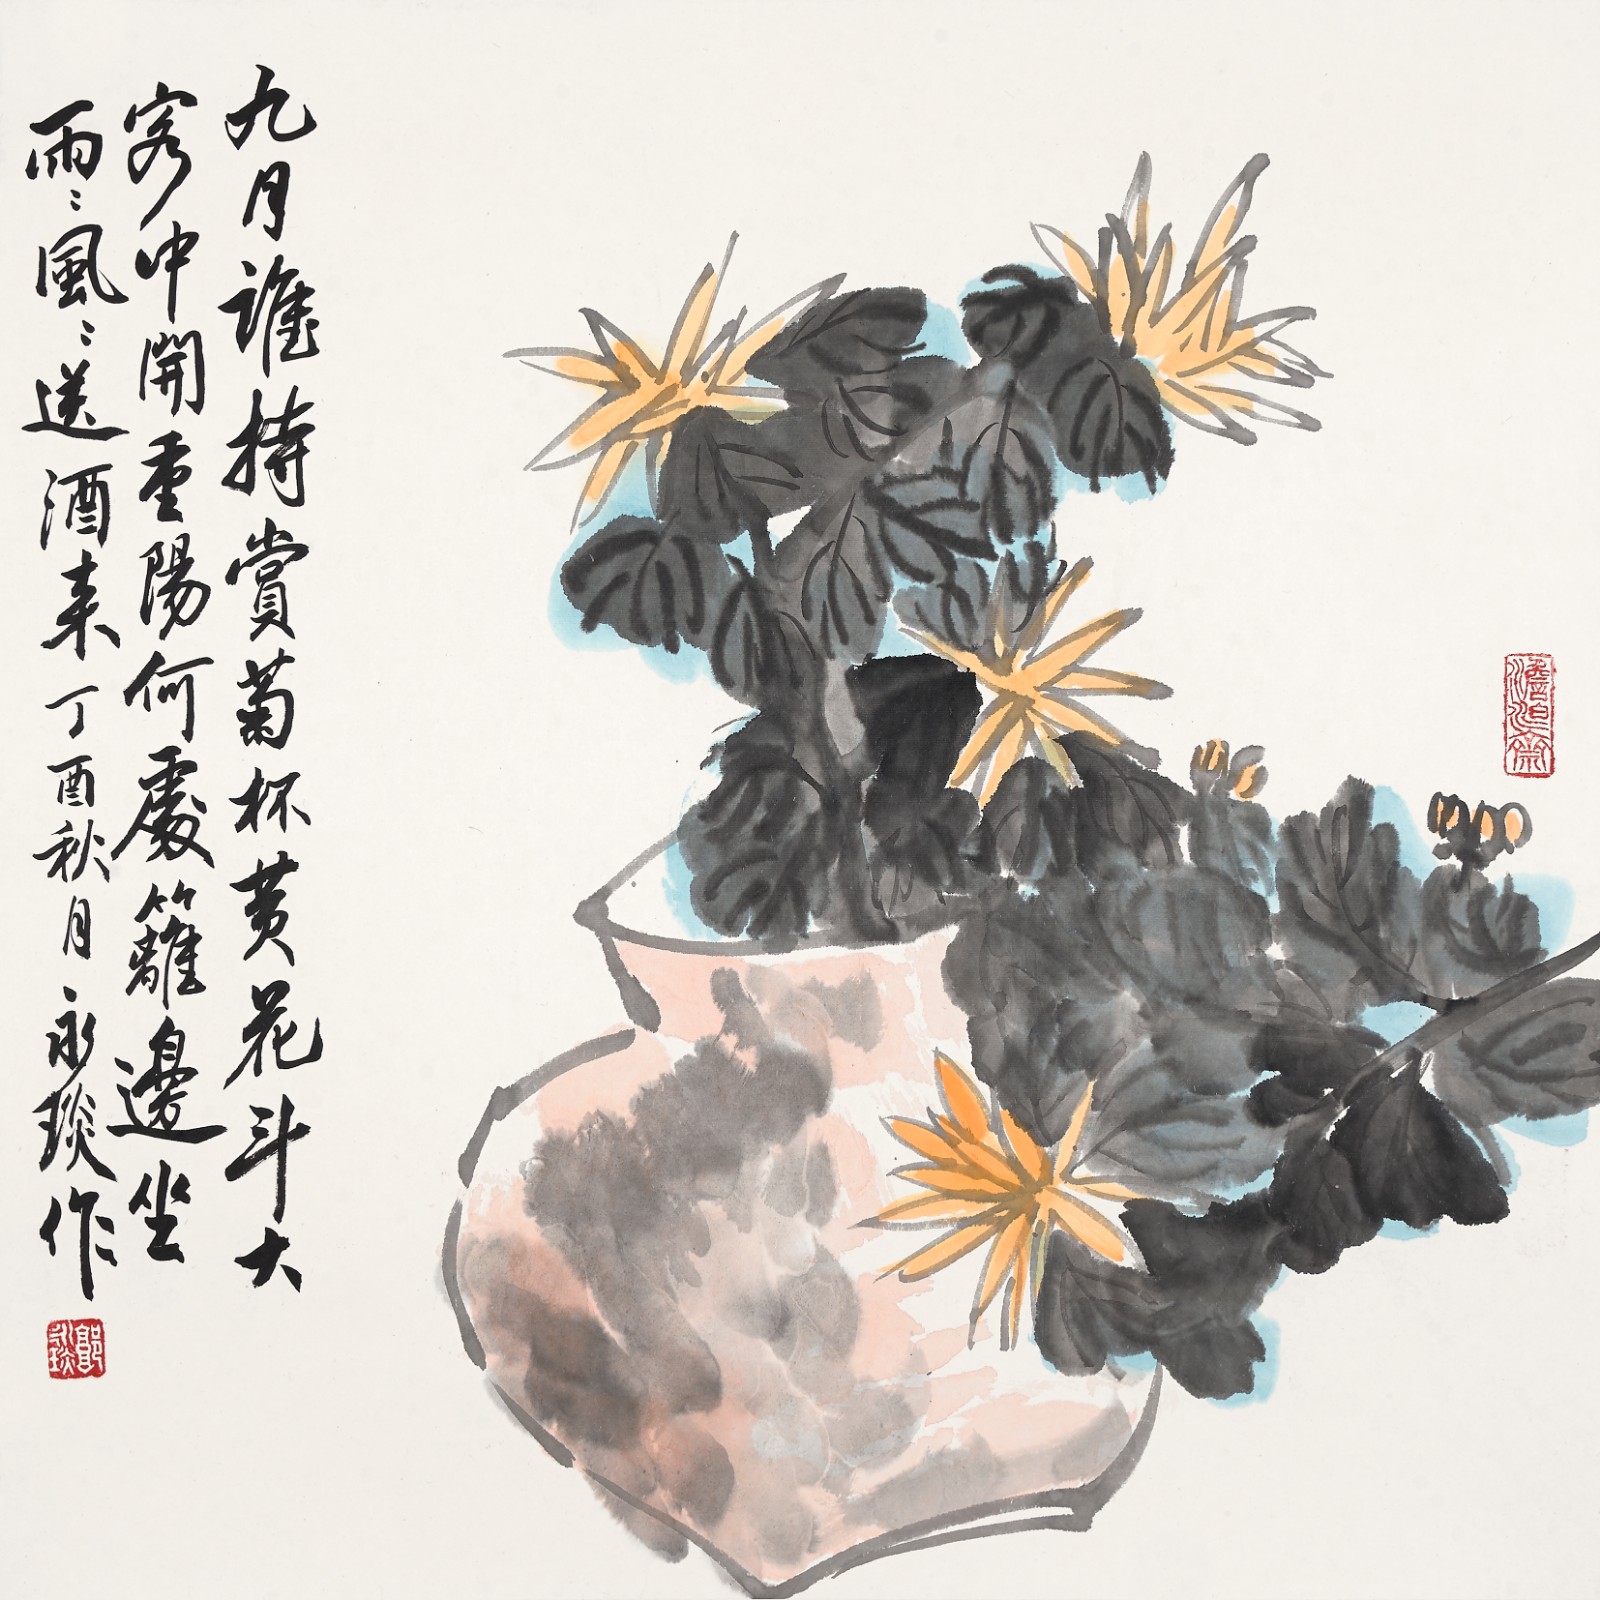 九月誰持賞菊杯黄花斗大
客中開重陽何處籬邊坐
雨〻風〻送酒來丁酉秋月永琰作